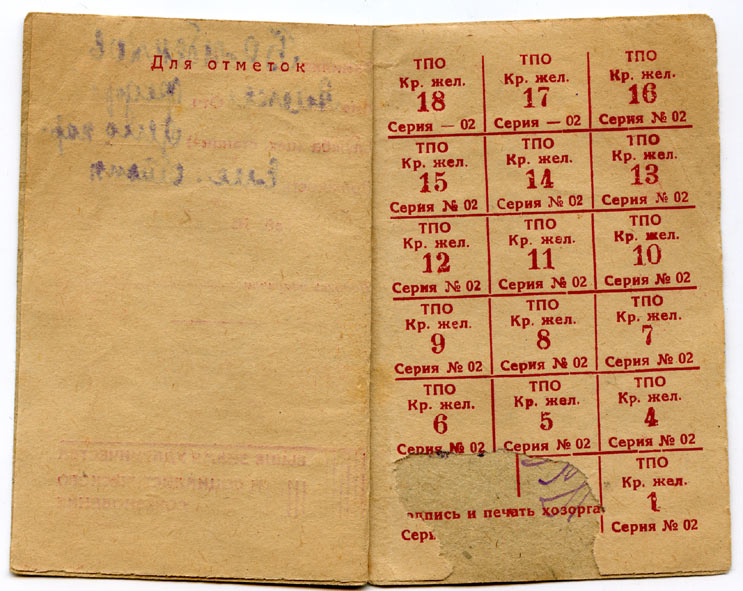 Для отметок
ТПО ТПО ТПО
Кр. жел. Кр. жел. Кр. жел.
18 17 16
Серия — 02 Серия — 02 Серия № 02
ТПО ТПО ТПО
Кр. жел. Кр. жел. Кр. жел.
15 14 13
Серия № 02 Серия № 02 Серия № 02
ТПО ТПО ТПО
Кр. жел. Кр. жел. Кр. жел.
12 11 10
Серия № 02 Серия № 02 Серия № 02
ТПО ТПО ТПО
Кр. жел. Кр. жел. Кр. жел.
9 8 7
Серия № 02 Серия № 02 Серия № 02
ТПО ТПО ТПО
Кр. жел. Кр. жел. Кр. жел.
6 5 4
Серия № 02 Серия № 02 Серия № 02
ТПО
Кр. жел.
1
Серия № 02
одпись и печать хозорга
Серь